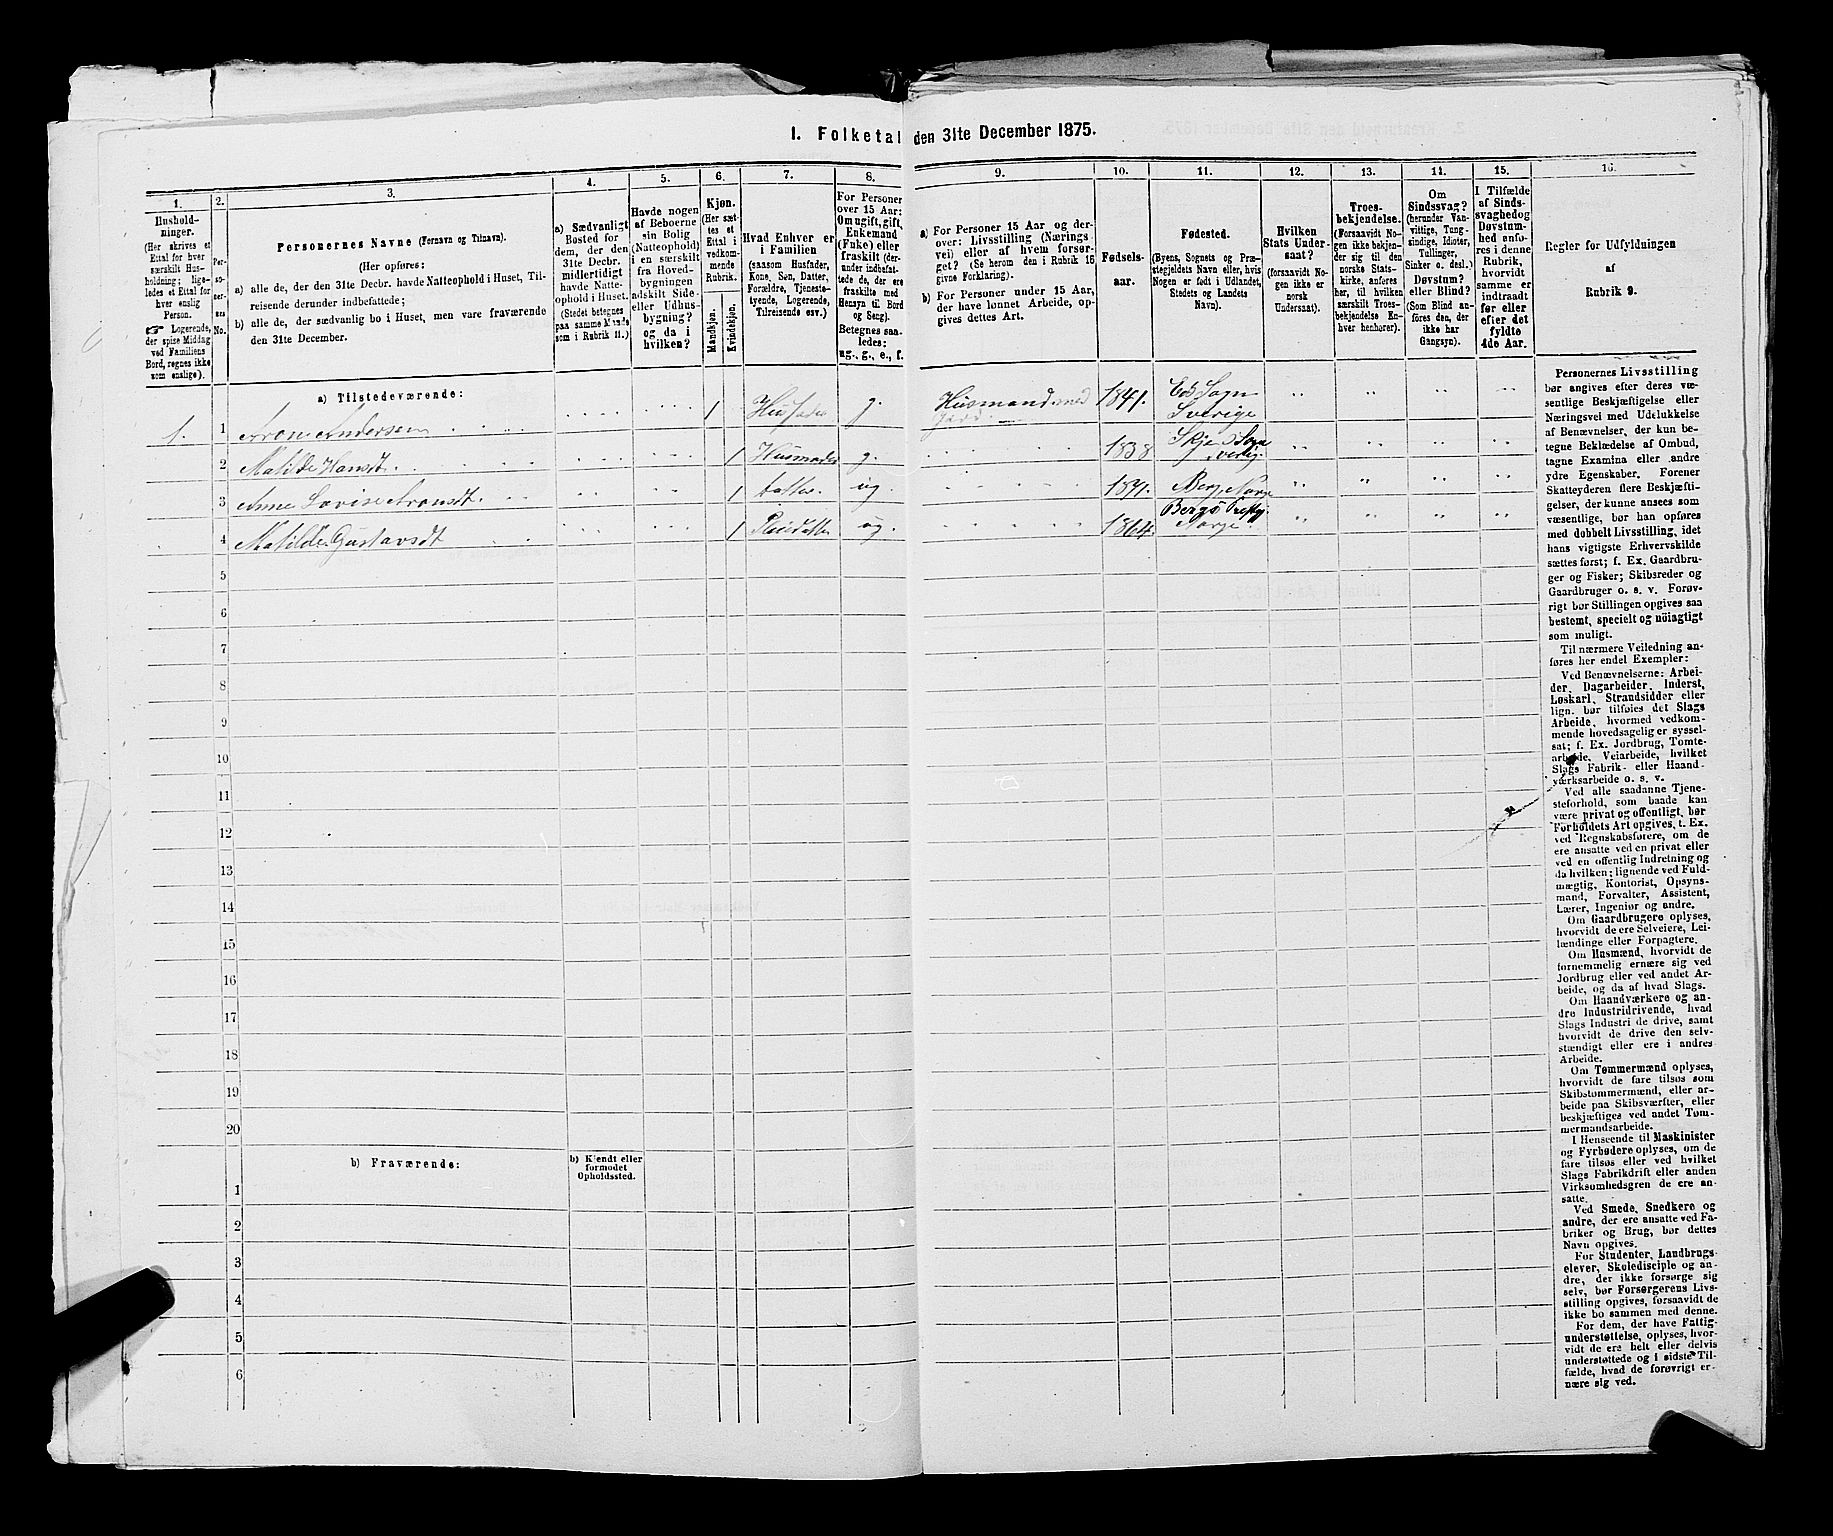 1. Folketal den 31te December 1875.
1.
Hushold-
ninger.
(Her skrives et
Ettal for hver
særskilt Hus-
holdning; lige-
ledes et Ettal for
hver enslig
Person.
☞ Logerende,
der spise Middag
ved Familiens
Bord, regnes ikke
som enslige).
2.
Per-
so-
ner-
nes
No.
3.
Personernes Navne (Fornavn og Tilnavn).
(Her opføres:
a) alle de, der den 31te Decbr. havde Natteophold i Huset, Til-
reisende derunder indbefattede;
b) alle de, der sædvanlig bo i Huset, men vare fraværende
den 31te December.
4.
a) Sædvanligt
Bosted for
dem, der den
31te Decbr.
midlertidigt
havde Natte-
ophold i Huset.
(Stedet betegnes
paa samme Maade
som i Rubrik 11.)
5.
Havde nogen
af Beboerne
sin Bolig
(Natteophold)
i en særskilt
fra Hoved-
bygningen
adskilt Side-
eller Udhus-
bygning?
og da i
hvilken?
6.
Kjøn.
(Her sæt-
tes et
Ettal i
vedkom-
mende
Rubrik.
Mandkjøn.
Kvindekjøn.
7.
Hvad Enhver er
i Familien
(saasom Husfader,
Kone, Søn, Datter,
Forældre, Tjeneste-
tyende, Logerende,
Tilreisende osv.)
8.
For Personer
over 15 Aar:
Om ugift, gift,
Enkemand
(Enke) eller
fraskilt (der-
under indbefat-
tede de, der ere
fraskilte med
Hensyn til Bord
og Seng).
Betegnes saa-
ledes:
ug., g., e., f.
9.
a) For Personer 15 Aar og der-
over: Livsstilling (Nærings
vei) eller af hvem forsør-
get? (Se herom den i Rubrik 16
givne Forklaring).
b) For Personer under 15 Aar,
der have lønnet Arbeide, op-
gives dettes Art.
10.
Fødsels-
aar.
11.
Fødested.
(Byens, Sognets og Præ-
stegjeldets Navn eller, hvis
Nogen er født i Udlandet,
Stedets og Landets
Navn).
12.
Hvilken
Stats Under-
saat?
(forsaavidt No-
gen ikke er
norsk
Undersaat).
13.
Troes-
bekjendelse.
(Forsaavidt No-
gen ikke bekjen-
der sig til den
norske Stats-
kirke, anføres
her, til hvilken
særskilt Troes-
bekjendelse En-
hver henhorer).
14.
Om
Sindssvag?
(herunder Van-
vittige, Tung-
sindige, Idioter,
Tullinger,
Sinker o. desl.)
Døvstum?
eller Blind?
(Som Blind an-
føres den, der
ikke har
Gangsyn).
15.
I Tilfælde
af Sinds-
svaghed og
Døvstum-
hed anfø-
res i denne
Rubrik,
hvorvidt
samme er
indtraadt
før eller
efter det
fyldte
4de Aar.
16.
Regler for Udfyldningen
af
Rubrik 9.
a) Tilstedeværende:
1. 1 Aron Andersen 1 Husfader g. Husmand med 1841. Ed Sogn Sverige
2 Matilde Hansdt. 1 Husmoder g. 1838
3 Anne Lovise Aronsdt. 1 Datter ug. 1871. Berg Norge
4 Matilde Gustavsdt 1 Pleiedatter ug. 1864. Bergs Norge
5
6
7
8
9
10
11
12
13
14
15
16
17
18
19
20
b) Fraværende:
b) Kjendt eller
formodet
Opholdssted.
1
2
3
4
5
6
Personernes Livsstilling
bør angives efter deres væ-
sentlige Beskjæftigelse eller
Næringsvei med Udelukkelse
af Benævnelser, der kun be-
tegne Beklædelse af Ombud,
tagne Examina eller andre
ydre Egenskaber. Forener
Skatteyderen flere Beskjæfti-
gelser, der kunne ansees som
væsentlige, bør han opføres
med dobbelt Livsstilling, idet
hans vigtigste Erhvervskilde
sættes først; f. Ex. Gaardbru-
ger og Fisker; Skibsreder og
Gaardbruger o. s. v. Forøv-
rigt bør Stillingen opgives saa
bestemt, specielt og nöiagtigt
som muligt.
Til nærmere Veiledning an-
føres her endel Exempler:
Ved Benævnelserne: Arbei-
der, Dagarbeider, Inderst,
Løskarl, Strandsidder eller
lign. bør tilføies det Slags
Arbeide, hvormed vedkom-
mende hovedsagelig er syssel-
sat; f. Ex. Jordbrug, Tomte-
arbeide, Veiarbeide, hvilket
Slags Fabrik- eller Haand-
værksarbeide o. s. v.
Ved alle saadanne Tjene-
steforhold, som baade kan
være privat og offentligt, bør
Forholdets Art opgives, t. Ex.
ved Regnskabsførere, om de
ere ansatte ved en privat eller
ved en offentlig Indretning og
da hvilken; lignende ved Fuld-
mægtig, Kontorist, Opsyns-
mand, Forvalter, Assistent,
Lærer, Ingeniør og andre.
Om Gaardbrugere oplyses,
hvorvidt de ere Selveiere, Lei-
lændinge eller Forpagtere.
Om Husmænd, hvorvidt de
fornemmelig ernære sig ved
Jordbrug eller ved andet Ar-
beide, og da af hvad Slags.
Om Haandværkere og an-
dre Industridrivende, hvad
Slags Industri de drive, samt
hvorvidt de drive den selv-
stændigt eller ere i andres
Arbeide.
Om Tømmermænd oplyses,
hvorvidt de fare tilsøs som
Skibstømmermænd, eller ar-
beide paa Skibsværfter, eller
beskjæftiges ved andet Tøm-
mermandsarbeide.
I Henseende til Maskinister
og Fyrbødere oplyses, om de
fare tilsøs eller ved hvilket
Slags Fabrikdrift eller anden
Virksomhedsgren de ere an-
satte.
Ved Smede, Snedkere og
andre, der ere ansatte ved Fa-
briker og Brug, bør dettes
Navn opgives.
For Studenter, Landbrugs-
elever, Skoledisciple og an-
dre, der ikke forsørge sig
selv, bør Forsørgerens Livs-
stilling opgives, forsaavidt de
ikke bo sammen med denne.
For dem, der have Fattig-
understøttelse, oplyses, hvor-
vidt de ere helt eller delvis
understøttede og i sidste Til-
fælde, hvad de forøvrigt er-
nære sig ved.